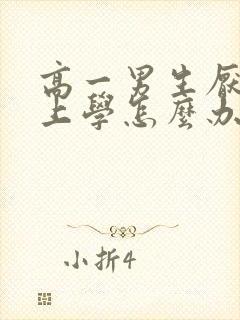 高一男生厭
上學怎麼办
小折4